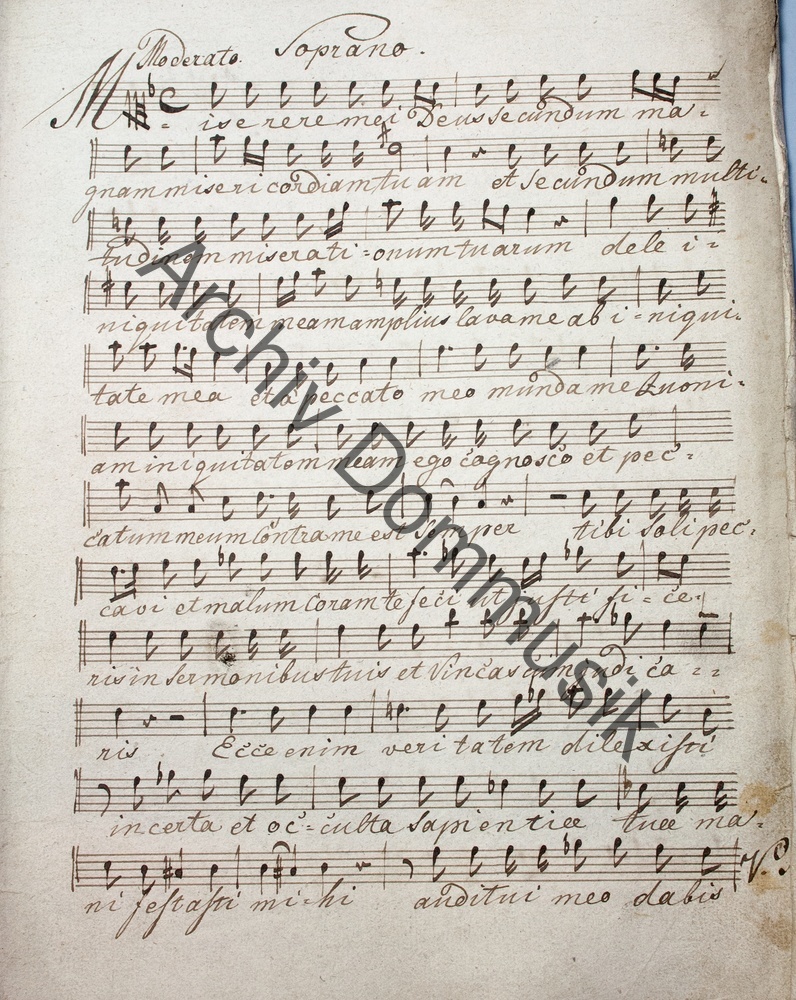 Moderato. Soprano.
Miserere mei Deus secundum ma-
gnam misericordiam tuam et secundum multi-
tudinem miserati-onum tuarum dele i-
niquitatem meam amplius lava me ab i-niqui-
tate mea et a peccato meo munda me Quoni-
am iniquitatem meam ego cognosco et pec-
catum meum Contra me est semper tibi soli pec-
cavi et malum Coram te feci ut justi fi-ce-
ris in sermonibus tuis et Vincas cum judi ca--
ris Ecce enim veritatem dilexisti
incerta et oc-culta sapientiae tuae ma-
nifestasti mi-hi auditui meo dabis
V.S
Archiv Dommusik